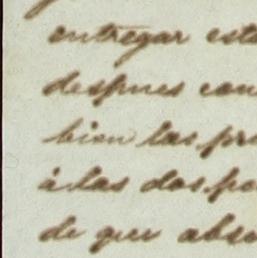 entregar este
despues con
bien las pr
á las dos pa
de que abso